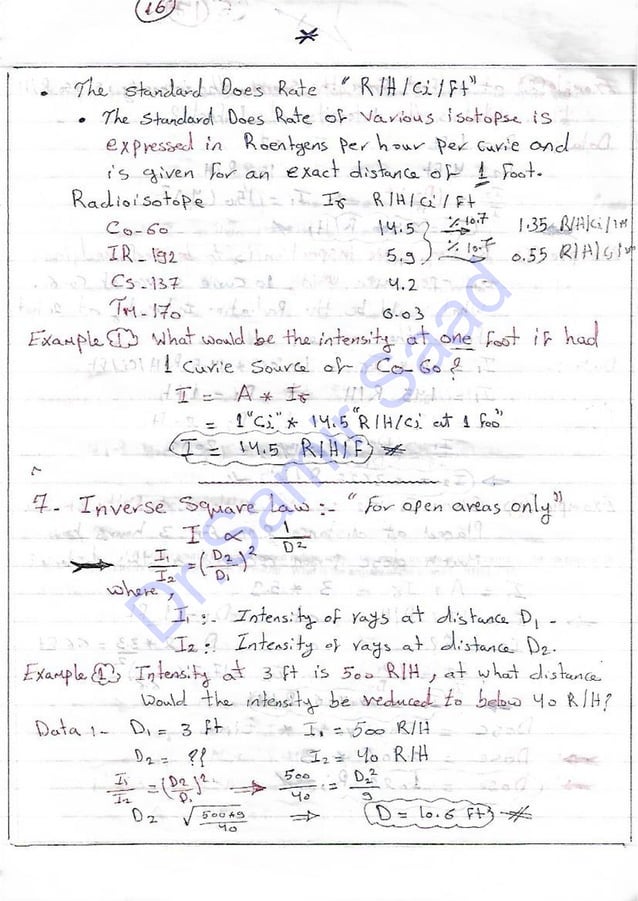 16
*
• The standard Does Rate "R/H/Ci/Ft"
• The standard Does Rate of various isotopse is
expressed in Roentgens per hour per curie and
is given for an exact distance of 1 foot.
Radioisotope Iɤ R/H/Ci/Ft
Co-60 14.5 % 10.7 1.35 R/H/Ci/m
IR-192 5.9 % 10.7 0.55 R/H/Ci/m
Cs-137 4.2
TM-170 0.03
Example ① What would be the intensity at one foot if had
1 curie source of Co-60?
I = A * Iɤ
= 1"Ci" * 14.5 "R/H/Ci at 1 foo"
I = 14.5 R/H/F
7- Inverse Square Law :- "For open areas only"
I ∝ 1/D²
I₁/I₂ = (D₂/D₁)²
where,
I₁ :- Intensity of rays at distance D₁ -
I₂ :- Intensity of rays at distance D₂.
Example ① Intensity at 3 ft is 500 R/H, at what distance
would the intensity be reduced to below 40 R/H?
Data :- D₁ = 3 ft I₁ = 500 R/H
D₂ = ?? I₂ = 40 R/H
I₁/I₂ = (D₂/D₁)² ⇒ 500/40 = D₂²/9
D₂ √(500*9/40) ⇒ D = 10.6 ft
Dr. Samir Saad